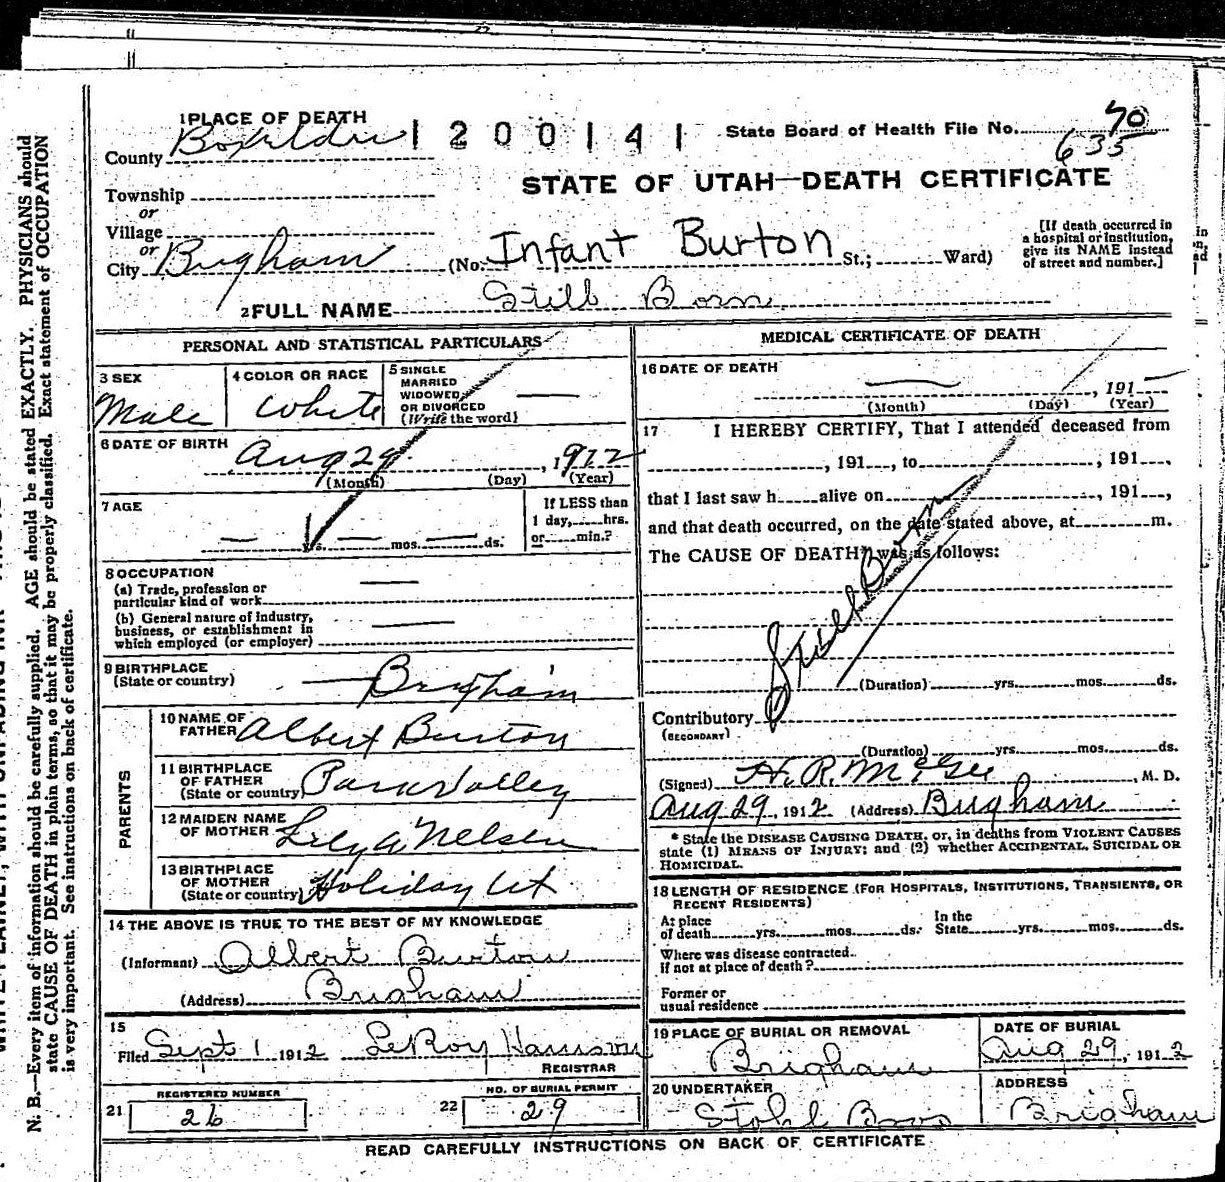 1 PLACE OF DEATH
County Boxelder 1200141 State Board of Health File No. 70
635
STATE OF UTAH—DEATH CERTIFICATE
Township
or
Village
or
City Brigham (No. Infant Burton St.; Ward)
[If death occurred in a hospital or institution, give its NAME instead of street and number.]
2 FULL NAME Still Born
PERSONAL AND STATISTICAL PARTICULARS
3 SEX
Male
4 COLOR OR RACE
White
5 SINGLE
MARRIED
WIDOWED
OR DIVORCED
(Write the word)
6 DATE OF BIRTH
Aug 29, 1912
(Month) (Day) (Year)
7 AGE
yrs. mos. ds.
If LESS than
1 day, hrs.
or min.?
8 OCCUPATION
(a) Trade, profession or
particular kind of work
(b) General nature of industry,
business, or establishment in
which employed (or employer)
9 BIRTHPLACE
(State or country) Brigham
PARENTS
10 NAME OF
FATHER Albert Burton
11 BIRTHPLACE
OF FATHER
(State or country) Park Valley
12 MAIDEN NAME
OF MOTHER Lily A Nelsen
13 BIRTHPLACE
OF MOTHER
(State or country) Holiday Ut
14 THE ABOVE IS TRUE TO THE BEST OF MY KNOWLEDGE
(Informant) Albert Burton
(Address) Brigham
15
Filed Sept 1 1912 LeRoy Harrison
REGISTRAR
REGISTERED NUMBER
21 26
NO. OF BURIAL PERMIT
22 29
MEDICAL CERTIFICATE OF DEATH
16 DATE OF DEATH
, 191
(Month) (Day) (Year)
17 I HEREBY CERTIFY, That I attended deceased from
, 191 , to , 191 ,
that I last saw h alive on , 191 ,
and that death occurred, on the date stated above, at m.
The CAUSE OF DEATH* was as follows:
Still Born
(Duration) yrs. mos. ds.
Contributory
(SECONDARY)
(Duration) yrs. mos. ds.
(Signed) H. R. McGee, M. D.
Aug 29, 1912 (Address) Brigham
* State the DISEASE CAUSING DEATH, or, in deaths from VIOLENT CAUSES
state (1) MEANS OF INJURY; and (2) whether ACCIDENTAL, SUICIDAL OR
HOMICIDAL.
18 LENGTH OF RESIDENCE (FOR HOSPITALS, INSTITUTIONS, TRANSIENTS, OR
RECENT RESIDENTS)
At place
of death yrs. mos. ds.
In the
State yrs. mos. ds.
Where was disease contracted
if not at place of death?
Former or
usual residence
19 PLACE OF BURIAL OR REMOVAL
Brigham
DATE OF BURIAL
Aug 29, 1912
20 UNDERTAKER
Stohl Bros
ADDRESS
Brigham
READ CAREFULLY INSTRUCTIONS ON BACK OF CERTIFICATE
N. B.—Every item of information should be carefully supplied. AGE should be stated EXACTLY. PHYSICIANS should
state CAUSE OF DEATH in plain terms, so that it may be properly classified. Exact statement of OCCUPATION
is very important. See instructions on back of certificate.